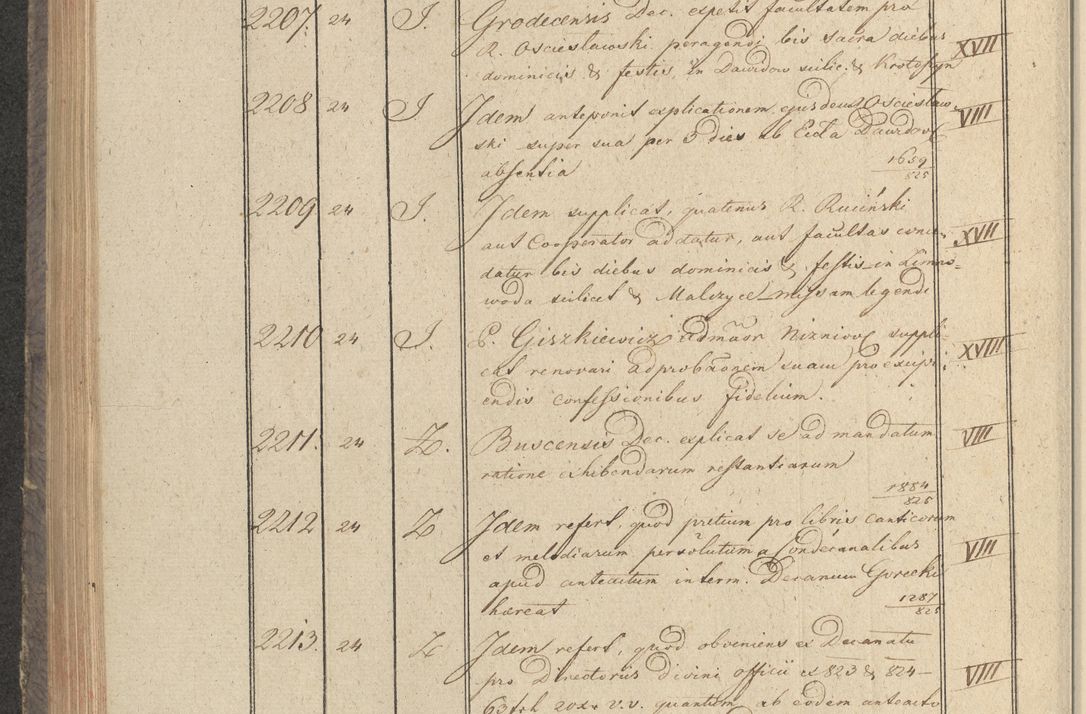 2207. 24 J. Grodecensis Dec. expetit facultatem pro
R. Oscieslawski peragendi bis sacra diebus XVIII
dominicis & festis, in Dawidow scilic. & Krotoszyn
2208 24 J Idem anteponit explicationem ejusdem Oscieslaw- VIII
ski super sua per 3 dies ab Ecla Dawidow
absentia 1659/825
2209 24 J. Idem supplicat, quatenus R. Ruciński
aut Cooperator addatur, aut facultas conce- XVII
datur bis diebus dominicis & festis in Zimno-
woda scilicet & Malczyce missam legendi
2210 24 J. P. Giszkiewicz admaor Nizniow suppli- XVIII
cat renovari adprobaonem suam pro excipi-
endis confessionibus fidelium.
2211. 24 Z. Buscensis Dec. explicat se ad mandatum VIII
ratione exhibendarum restantiarum
1884/825
2212 24 Z Idem refert, quod pretium pro libris canticorum
et melodiarum persolutum a Condecanalibus VIII
apud anteactum interm. Decanum Gorecki
haereat 1287/825
2213. 24 Z Idem refert, quod obveniens ex Decanatu
pro Directoriis divini officii ex 823 & 824 — VIII
v.v. quantum ab eodem anteacto